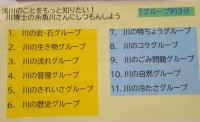 浅川のことをもっと知りたい!
川博士の糸魚川さんにしつもんしよう
1グループ約3分
1. 川の岩・石グループ
2. 川の生き物グループ
3. 川の流れグループ
4. 川の管理グループ
5. 川のきれいさグループ
6. 川の歴史グループ
7. 川の特ちょうグループ
8. 川のコケグループ
9. 川のごみ問題グループ
10. 川の自然グループ
11. 川の冷たさグループ